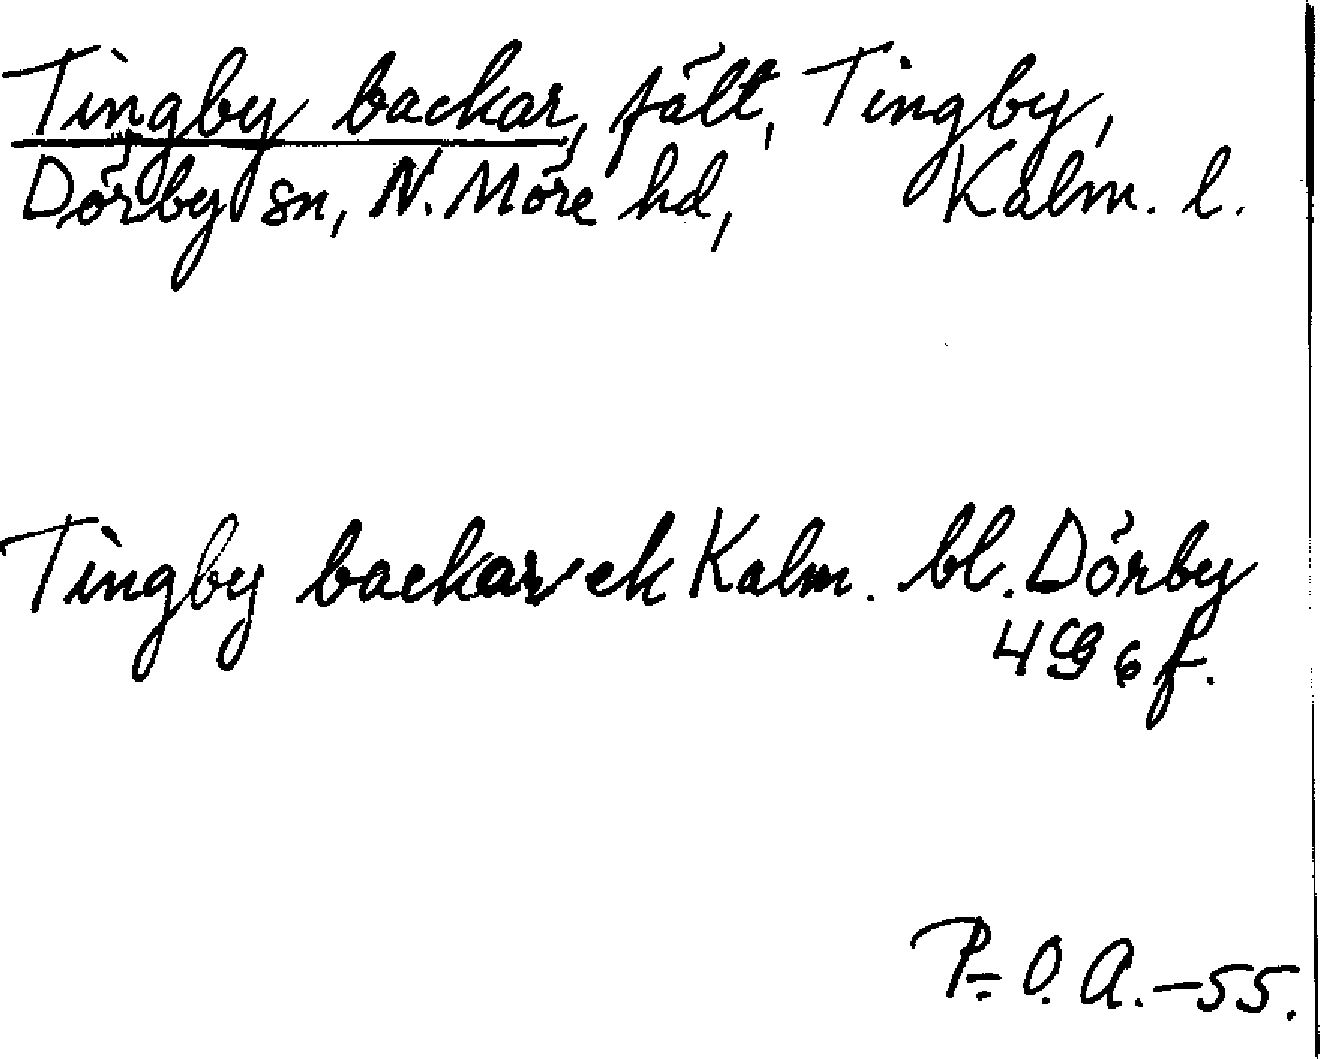 Tingby backar, fält, Tingby,
Dörby sn, N. Möre hd, Kalm. l.
Tingby backar ek Kalm. bl. Dörby
496 f.
P. O. A. -55.